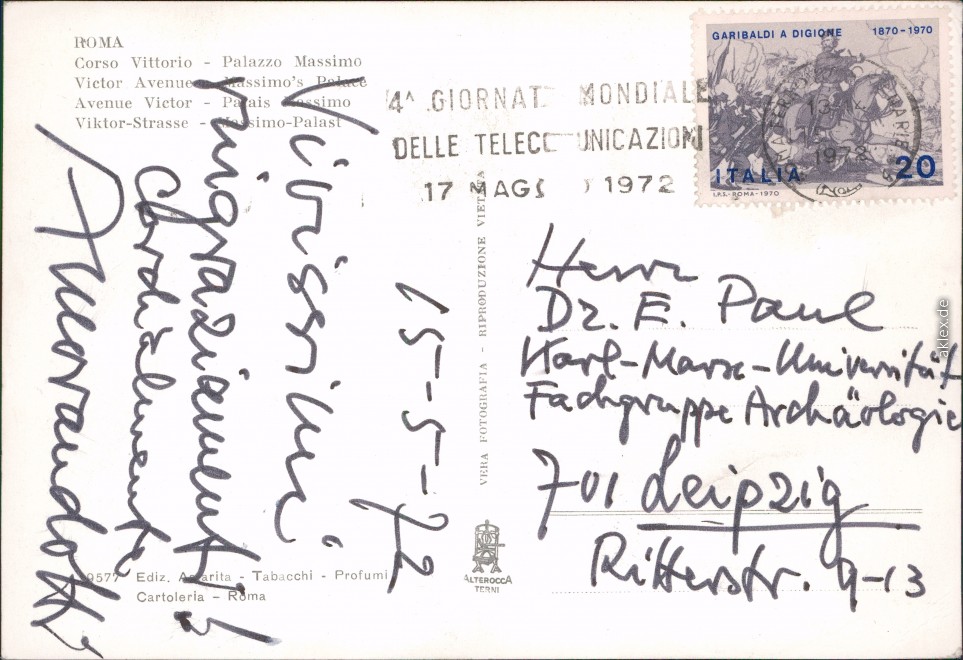 ROMA
Corso Vittorio - Palazzo Massimo
Victor Avenue - Massimo's Palace
Avenue Victor - Palais Massimo
Viktor-Strasse - Massimo-Palast
4ᴬ GIORNAT MONDIALE
DELLE TELECO UNICAZIONI
17 MAGG 1972
GARIBALDI A DIGIONE 1870-1970
ITALIA 20
I.P.S.-ROMA-1970
1972
15-5-72
Vivissimi
ringraziamenti
Cordialmente
VERA FOTOGRAFIA - RIPRODUZIONE VIETATA
Herrn
Dr. E. Paul
Karl-Marx-Universität
Fachgruppe Archäologie
701 Leipzig
Ritterstr. 9-13
9577 Ediz. Amarita - Tabacchi - Profumi
Cartoleria - Roma
ALTEROCCA
TERNI
aklex.de